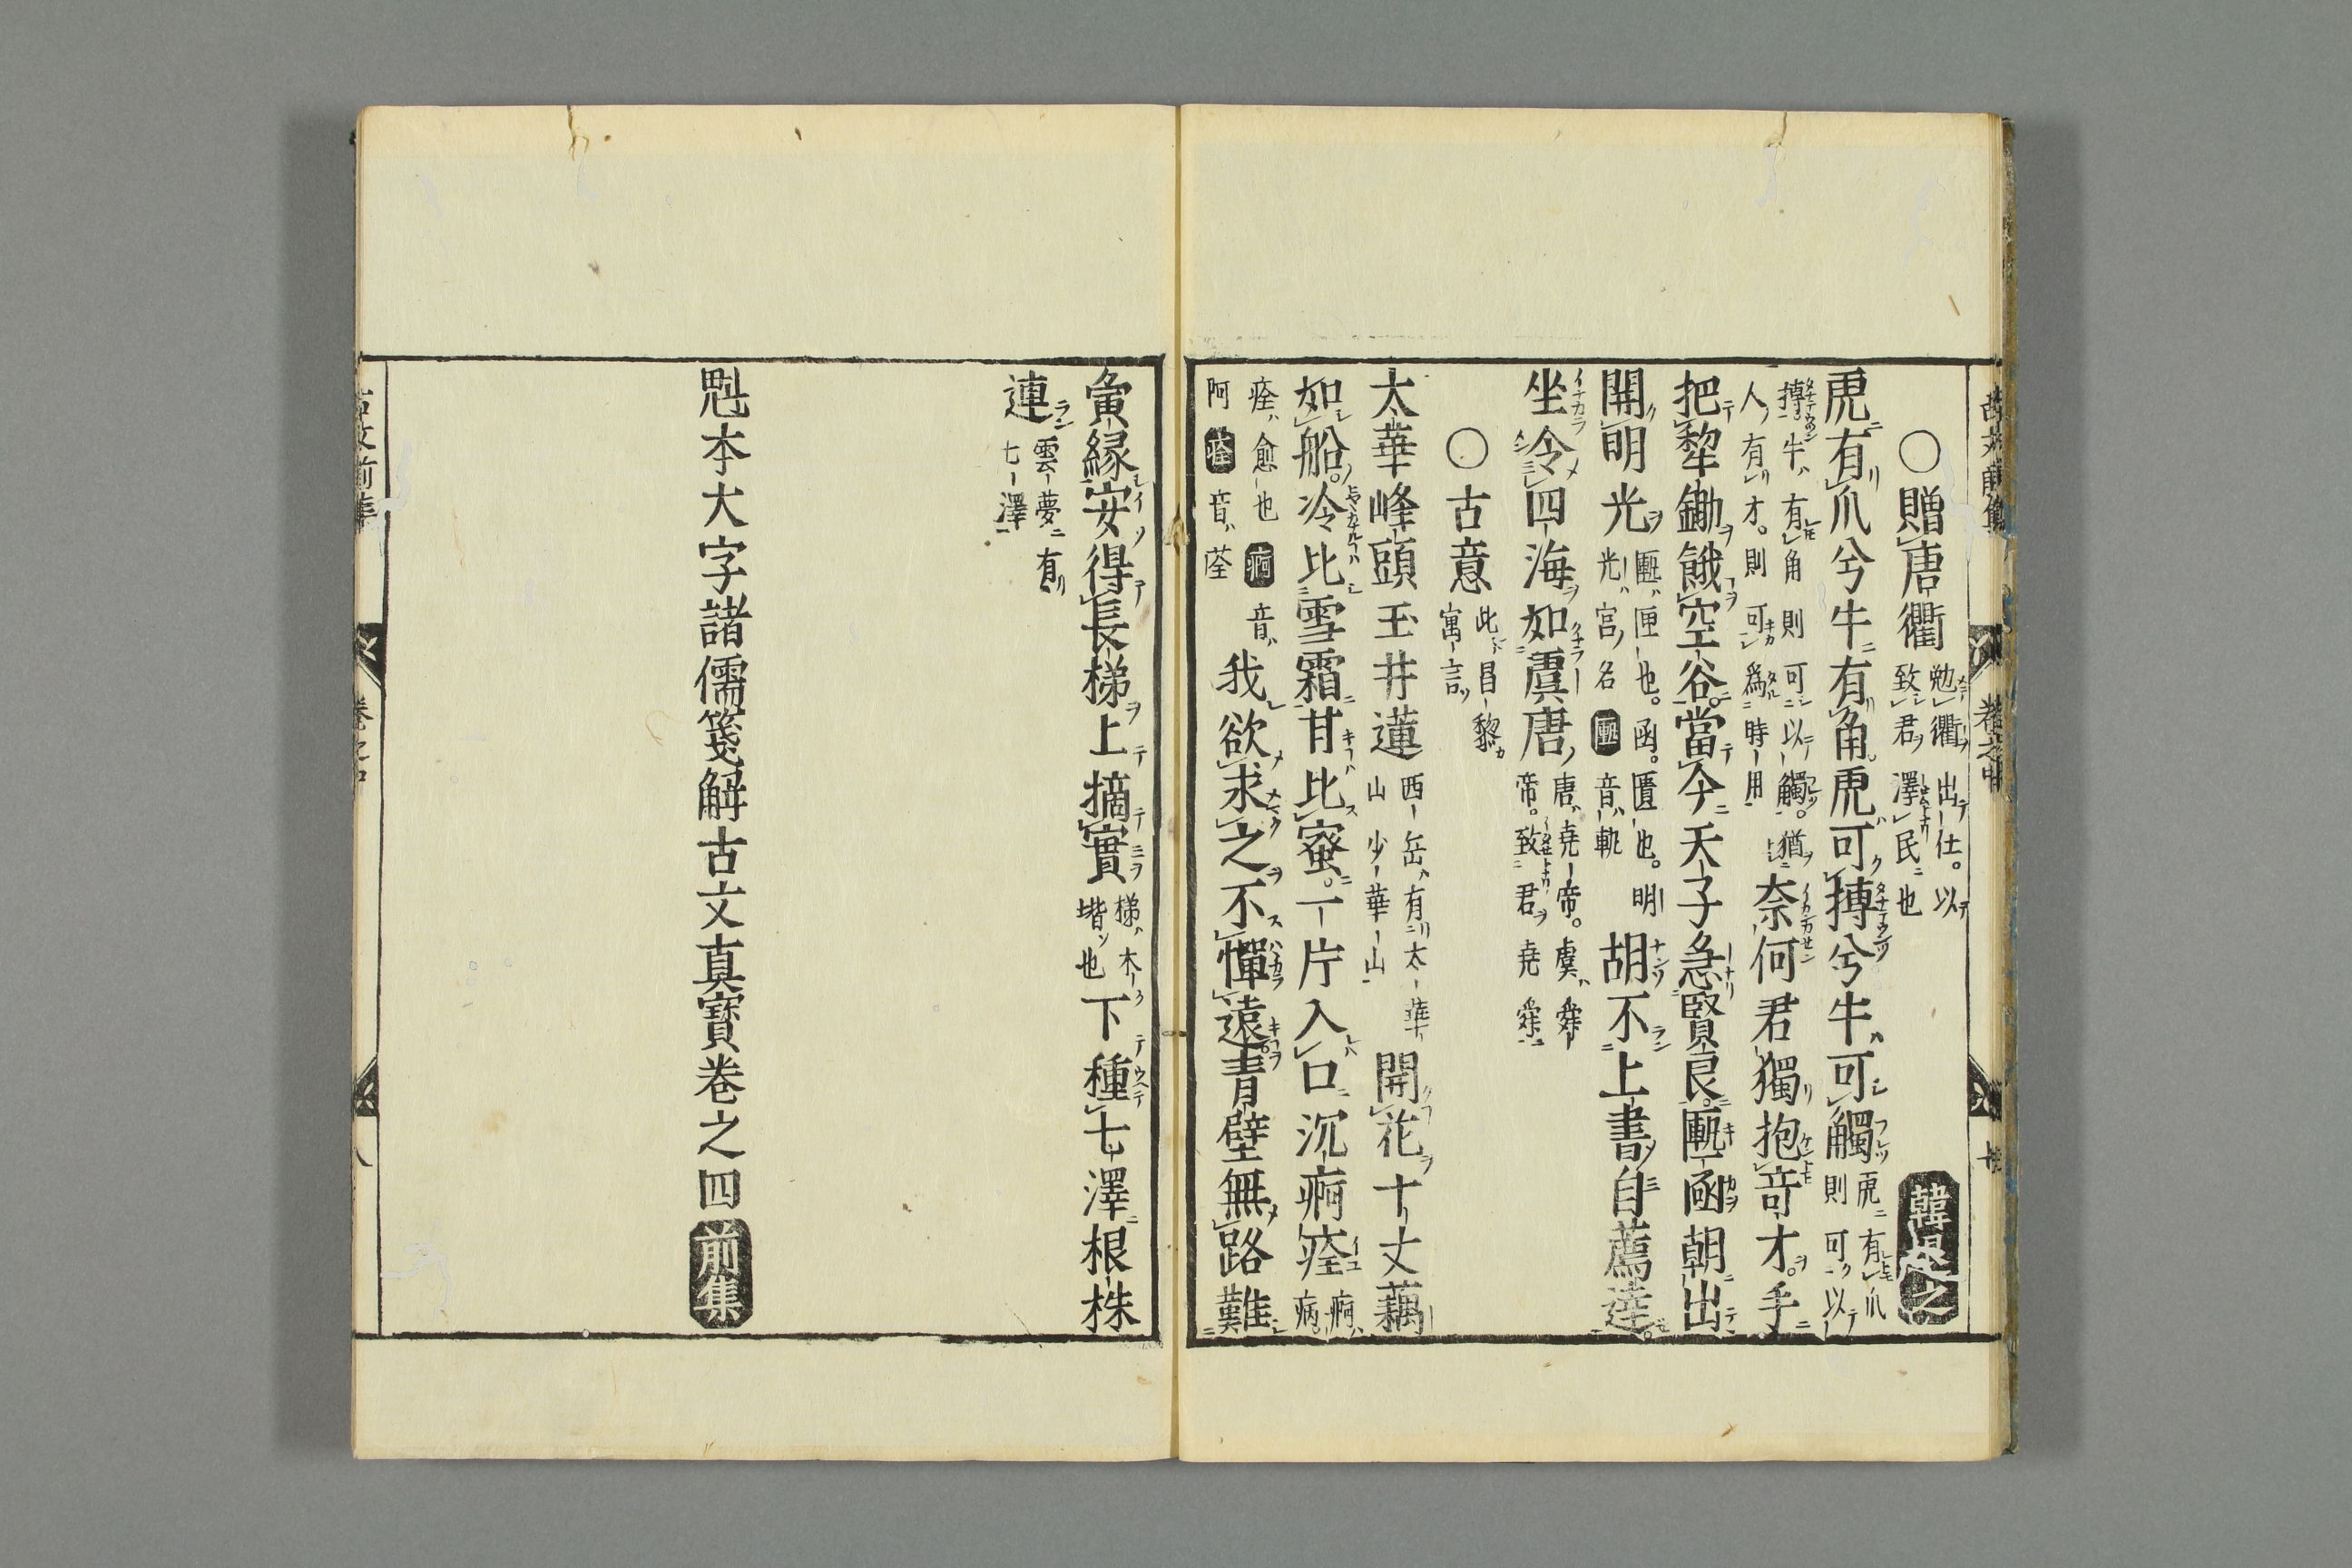 〇贈唐衢 勉衢出仕。以致君澤民也 韓退之
虎有爪兮牛有角。虎可搏兮牛可觸 虎有爪則可以
搏。牛有角則可以觸。猶人有才。則可爲時用 奈何君獨抱竒才。手
把犂鋤餓空谷。當今天子急賢良。匭凾朝出
開明光 匭匣也。凾。匱也。明光宮名 匭音軌 胡不上書自薦達。
坐令四海如虞唐 唐堯帝。虞舜帝。致君堯舜
〇古意 此昌黎寓言
太華峰頭玉井蓮 西岳有太華山少華山 開花十丈藕
如船。冷比雪霜甘比蜜。一片入口沉痾痊 痾病。
痊愈也 痾音阿 痊音荃 我欲求之不憚遠。青壁無路難
夤緣安得長梯上摘實 梯木堦也 下種七澤根株
連 雲夢有七澤
魁本大字諸儒箋解古文真寶卷之四 前集
古文前集 卷之中